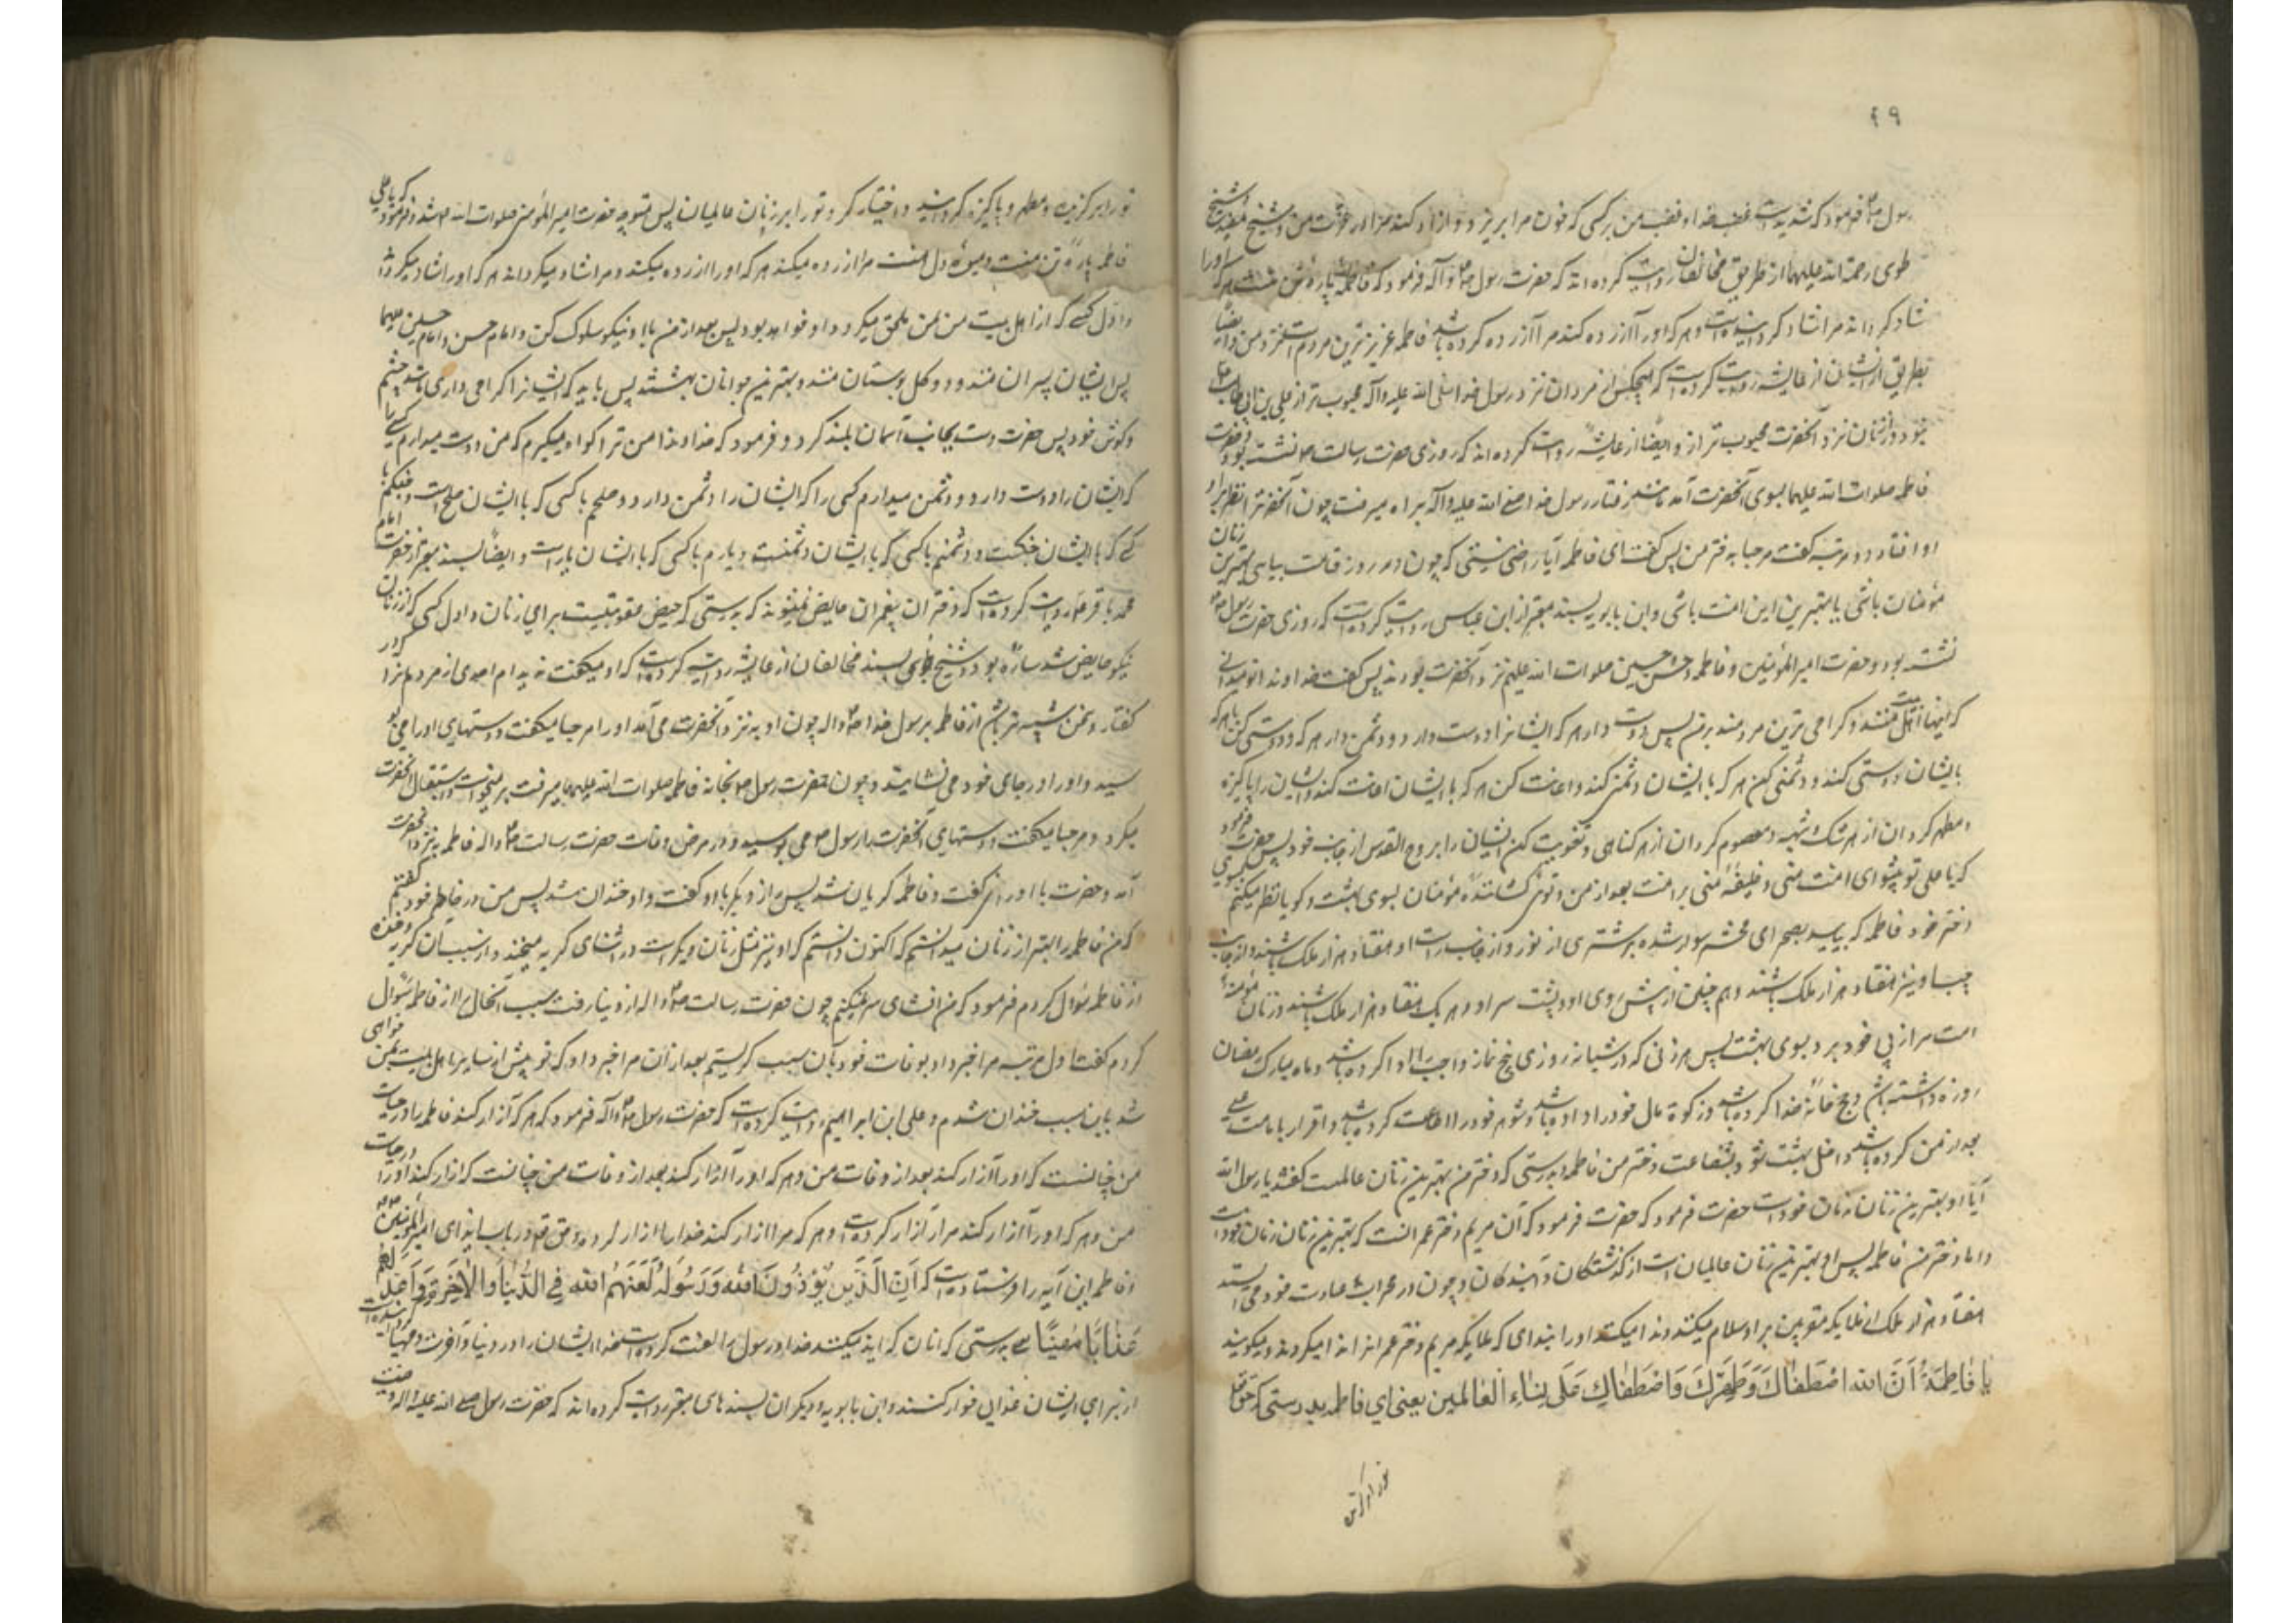 ۴۹
رسول ص فرمود که شدید است غضب خدا و غضب من بر کسی که خون مرا بریزد و آزار کند مرا در عترت من و شیخ مفید و شیخ
طوسی رحمة الله علیهما از طریق مخالفان روایت کرده اند که حضرت رسول ص وآله فرمود که فاطمه پاره تن منست هر که اورا
شاد کرداند مرا شاد کردانیده است و هر که اورا آزرده کند مرا آزرده کرده باشد فاطمه عزیزترین مردم است نزد من و ایضا
بطریق ایشان از عایشه روایت کرده است که هیچکس از مردان نزد رسول خدا صلی الله علیه وآله محبوب تر از علی بن ابی طالب
نبود و از زنان نزد آنحضرت محبوب تر از و ایضا از عایشه روایت کرده اند که روزی حضرت رسالت ص نشسته بود و حضرت
فاطمه صلوات الله علیها بسوی آنحضرت آمد مانند رفتار رسول خدا صلی الله علیه وآله براه میرفت چون آنحضرترا نظر بر او
او افتاد دو مرتبه گفت مرحبا بدختر من پس گفت ای فاطمه آیا راضی نیستی که چون در روز قیامت بیایی بهترین زنان
مؤمنان باشی یا بهترین این امت باشی و ابن بابویه بسند معتبر از ابن عباس روایت کرده است که روزی حضرت رسول ص
نشسته بود و حضرت امیرالمؤمنین و فاطمه و حسن و حسین صلوات الله علیهم نزد آنحضرت بودند پس گفت خداوندا تو میدانی
که اینها اهل بیت منند و کرامی ترین مردمند بر من پس دوست دار هر که ایشانرا دوست دارد و دشمن دار هر که و دوستی کن با هر که
بایشان دوستی کند و دشمنی کن هر که با ایشان دشمنی کند و اعانت کن هر که با ایشان اعانت کند و ایشان را پاکیزه
و مطهر کردان از هر شک و شبهه و معصوم کردان از هر کناهی و تقویت کن ایشان را بروح القدس از جانب خود پس حضرت فرمود
که یا علی تو پیشوای امت منی و خلیفه منی بر امت بعد از من و توئی کشاننده مؤمنان بسوی بهشت و کویا نظر میکنم بسوی
دختر خود فاطمه که بیاید بصحرای محشر سوار شده بر شتری از نور و از جانب راست او هفتاد هزار ملک باشند و از جانب
چپ او نیز هفتاد هزار ملک باشند و همچنین از پیش روی او و پشت سر او و هر یک هفتاد هزار ملک باشند و زنان مؤمنه
امت مرا از پی خود برد بسوی بهشت پس هر زنی که در شبانه روزی پنج نماز واجب را ادا کرده باشد و ماه مبارک رمضان
روزه داشته باشد و حج خانه خدا کرده باشد و زکوة مال خود را داده باشد و شوهر خود را اطاعت کرده باشد و اقرار بامامت علی
بعد از من کرده باشد داخل بهشت شود بشفاعت دختر من فاطمه بدرستی که دختر من بهترین زنان عالمست گفتند یا رسول الله
آیا او بهترین زنان زمان خود است حضرت فرمود که حضرت فرمود که آن مریم دختر عمرانست که بهترین زنان زمان خود است
و اما دختر من فاطمه پس او بهترین زنان عالمیان است از کذشتکان و آیندکان و چون در محراب عبادت خود می ایستد
هفتاد هزار ملک از ملایکه مقربین بر او سلام میکنند و ندا میکنند اورا بندای که ملایکه مریم دختر عمرانرا ندا میکردند و میکویند
یا فاطِمَةُ اَنَّ الله اصْطَفاكِ وَطَهَّرَكِ وَاصْطَفاكِ عَلى نِساءِ الْعالَمین یعنی ای فاطمه بدرستی که حق تعالی
تورا برکزید
تورا برکزیده و مطهر و پاکیزه کردانید و اختیار کرد تورا بر زنان عالمیان پس متوجه حضرت امیرالمؤمنین صلوات الله علیه شد و فرمود که یا علی
فاطمه پاره تن منست و میوه دل منست مرا آزرده میکند هر که اورا آزرده میکند و مرا شاد میکرداند هر که اورا شاد میکرداند
و اول کسی که از اهل بیت من بمن ملحق میکردد او خواهد بود پس بعد از من با او نیکو سلوک کن و امام حسن و امام حسین علیهما
پس ایشان پسران منند و دو کل بوستان منند و بهترین جوانان بهشتند پس باید که ایشانرا کرامی داری مانند چشم
و کوش خود پس حضرت دست بجانب آسمان بلند کرد و فرمود که خداوندا من ترا کواه میکیرم که من دوست میدارم کسی را
که ایشان را دوست دارد و دشمن میدارم کسی را که ایشان را دشمن دارد و صلحم با کسی که با ایشان صلح است و جنکم با
کسی که با ایشان جنکست و دشمنم با کسی که با ایشان دشمنست و یارم با کسی که با ایشان یارست و ایضا بسند معتبر از حضرت امام
محمد باقر ع روایت کرده است که دختران پیغمبران حایض نمیشوند که بدرستی که حیض عقوبتیست برای زنان و اول کسی که از زنان
که حایض شد ساره بود و شیخ طوسی بسند مخالفان از عایشه روایت کرده است که او میکفت ندیدم احدی از مردم را در
گفتار و سخن شبیه تر باشد از فاطمه برسول خدا ص وآله چون او بنزد آنحضرت می آمد اورا مرحبا میکفت و دستهای اورا می بو
سید و اورا در جای خود می نشانید و چون حضرت رسول ص بخانه فاطمه صلوات الله علیها میرفت بر میخواست و استقبال آنحضرت
میکرد و مرحبا میکفت و دستهای آنحضرت را رسول ص می بوسید و در مرض وفات حضرت رسالت ص وآله فاطمه بنزد آنحضرت
آمد و حضرت با او رازی گفت و فاطمه کریان شد پس راز دیکر با او گفت و او خندان شد پس من در خاطر خود گفتم
که من فاطمه را بهتر از زنان میدانستم که اکنون دانستم که او نیز مثل زنان دیکرست در اثنای کریه میخندد و از سبب آن کریه و خنده
از فاطمه سؤال کردم فرمود که من افشای سر نمیکنم چون حضرت رسالت ص وآله از دنیا رفت سبب آنحال را از فاطمه سؤال
کردم گفت اول مرتبه مرا خبر داد بوفات خود بآن سبب کریستم بعد از آن مرا خبر داد که تو پیش از سایر اهل بیت بمن خواهی
شد باین سبب خندان شدم و علی ابن ابراهیم روایت کرده است که حضرت رسول ص وآله فرمود که هر که آزار کند فاطمه را در حیات
من چنانست که اورا آزار کند بعد از وفات من و هر که اورا آزار کند بعد از وفات من چنانست که آزار کند اورا در حیات
من و هر که اورا آزار کند مرا آزار کرده است و هر که مرا آزار کند خدا را آزار کرده و حق تع در باب ایذای امیرالمؤمنین ص
و فاطمه این آیه را فرستاده است که اِنَّ الَّذینَ یُؤْذُونَ اللهَ وَرَسُولَهُ لَعَنَهُمُ اللهُ فِی الدُّنْیا وَالْآخِرَةِ وَاَعَدَّ لَهُمْ
عَذاباً مُهیناً بدرستی که آنان که ایذا میکنند خدا و رسول را لعنت کرده است خدا ایشان را در دنیا و آخرت و مهیا کردانیده است
از برای ایشان عذابی خوار کننده و ابن بابویه و دیکران بسندهای معتبر روایت کرده اند که حضرت رسول صلی الله علیه وآله